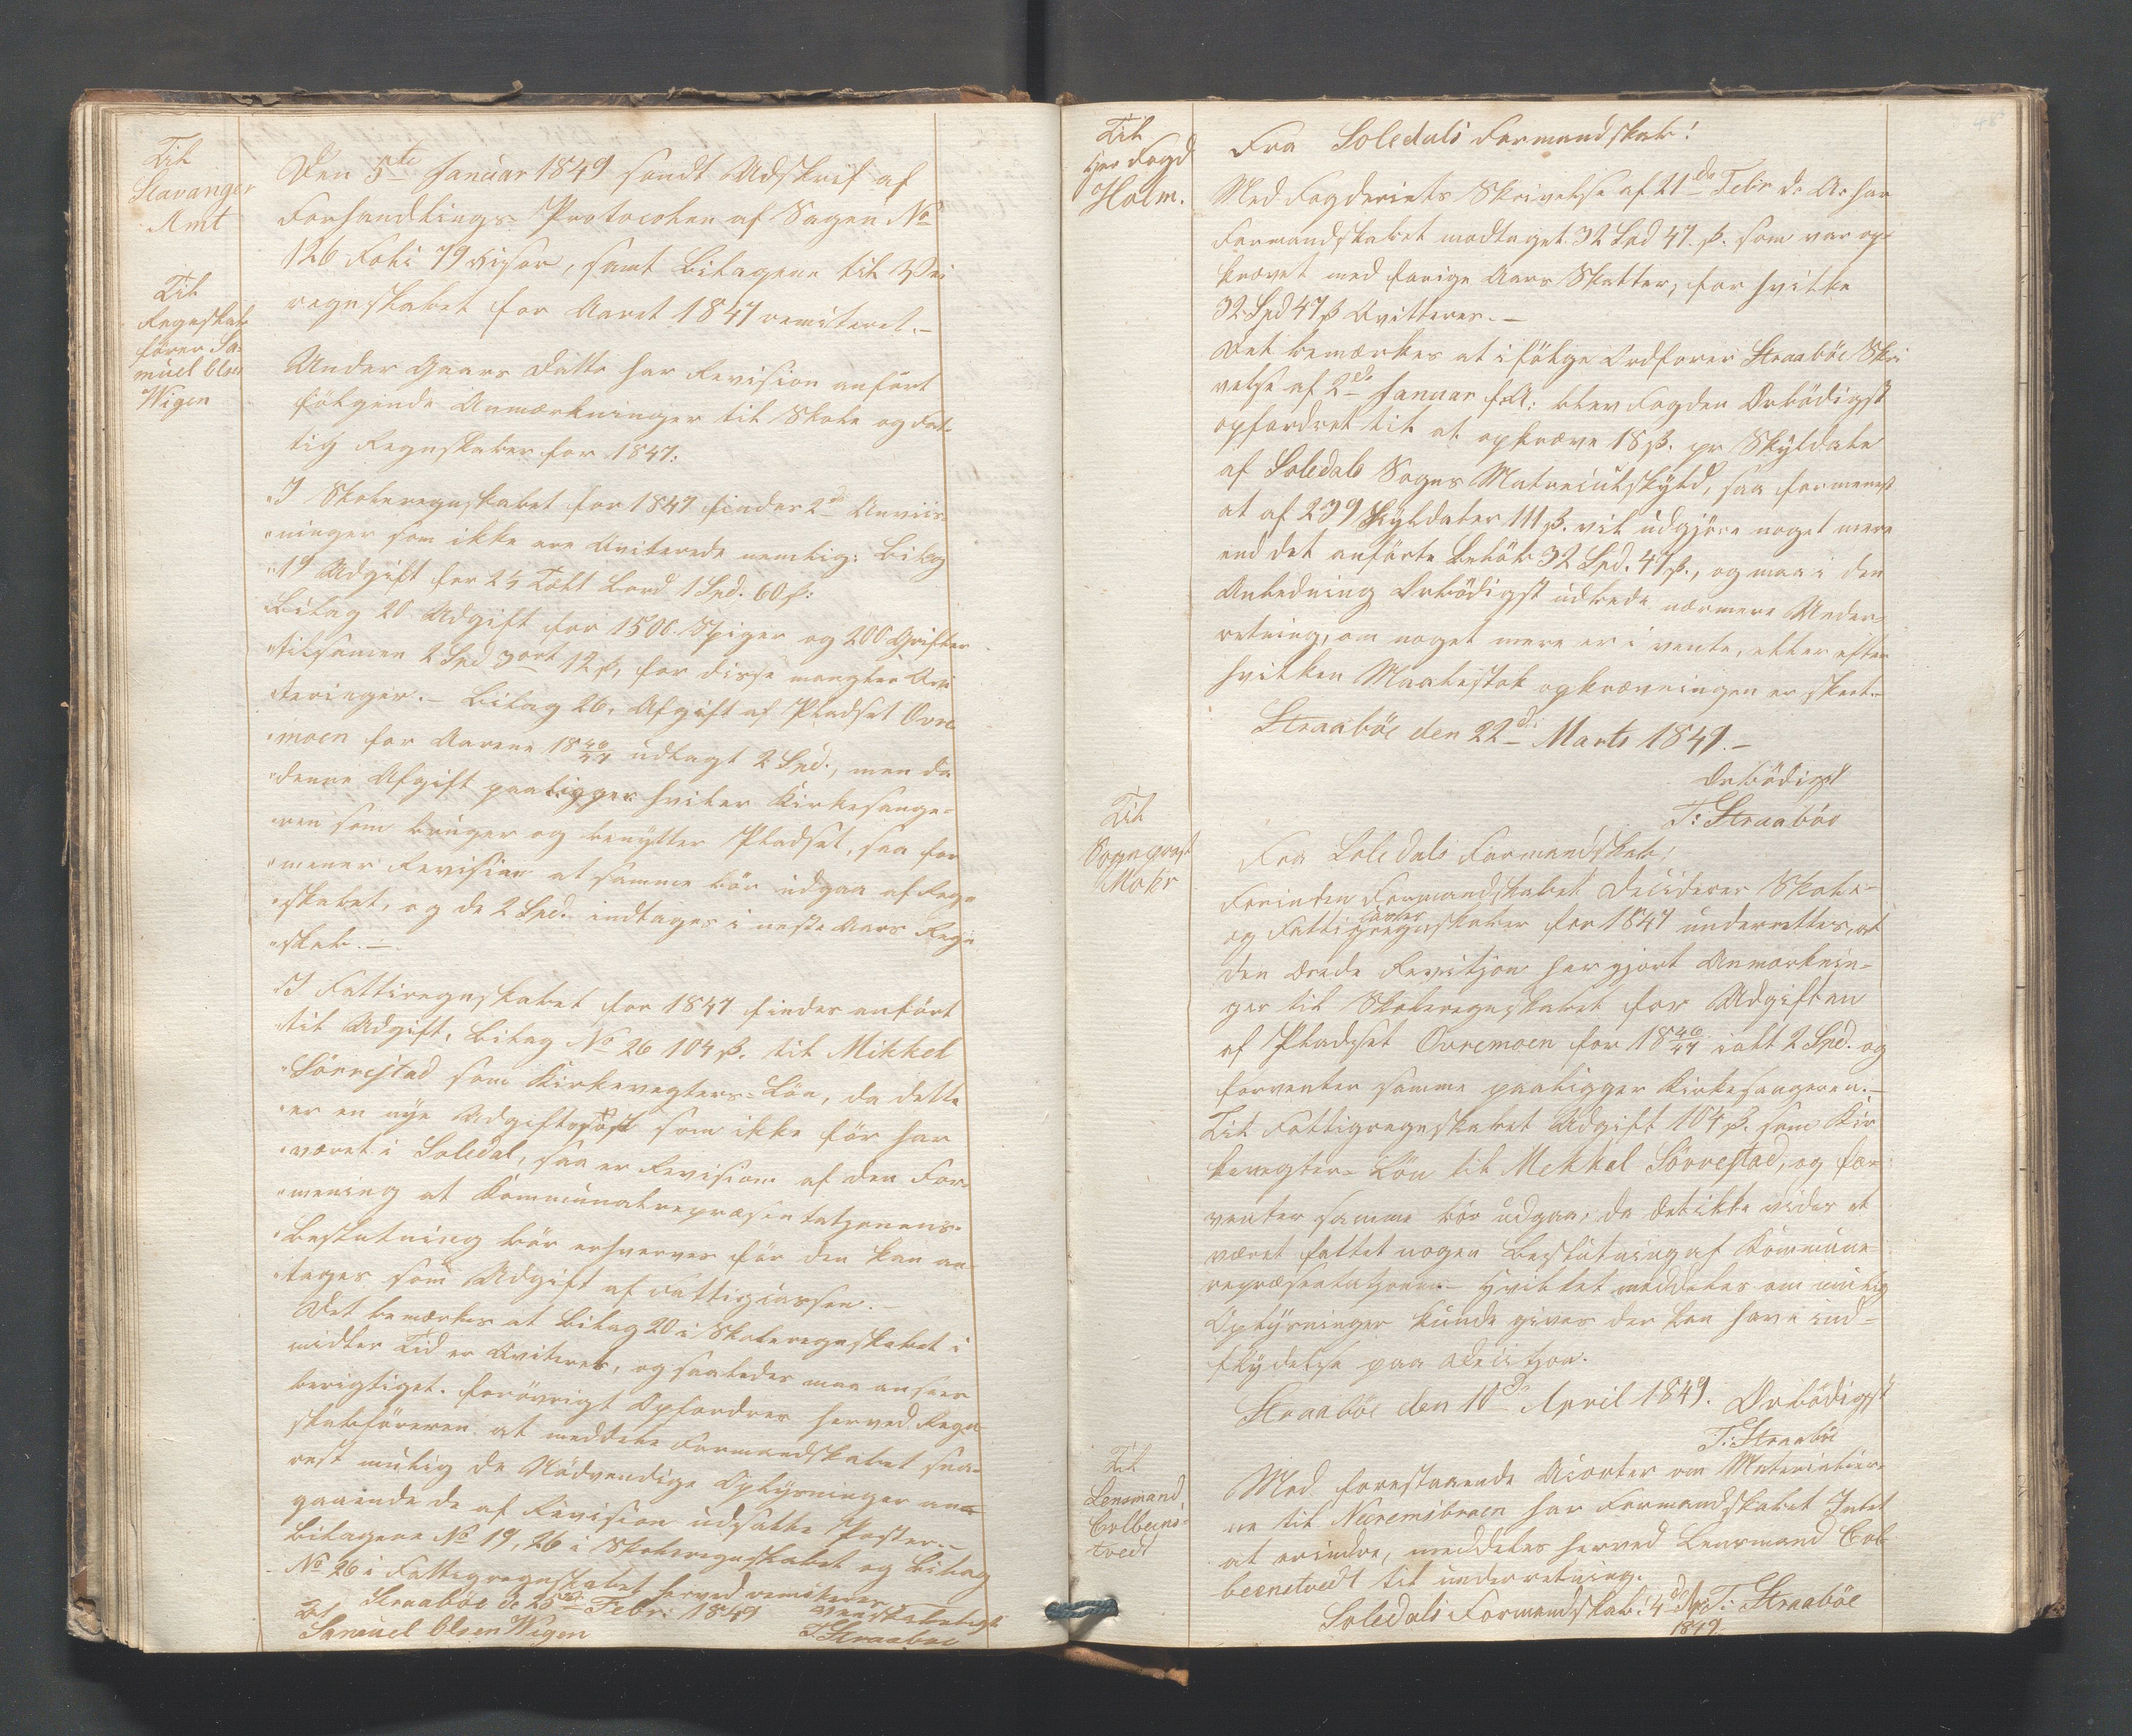 Til
Stavanger
Amt
Den 5te Januar 1849 sendt Udskrif af
Forhandlings Protocolen af Sagen No
126 Folio 79 viser, samt Bilagene til Vei
regnskabet for Aaret 1847 remiteret.-
Til
Regnskab
fører Sa-
muel Olsen
Wigen
Under Gaars Datto har Revision anført
følgende Anmærkninger til Skole og Fat-
tig Regnskaber for 1847:
"I Skoleregnskabet for 1847 findes 2de Anviis-
"ninger som ikke ere Qviterede nemlig: Bilag
"19 Udgift for 2½ Tolt Bord 1 Spd. 60 s:
Bilag 20 Udgift for 1500 Spiger og 200 Grifter
"tilsamen 2 Spd 3 ort 12 s, for disse mangler Qvi
"teringer.- Bilag 26, Afgift af Pladset Ovre
"moen for Aarene 18 46/47 udlagt 2 Spd., men da
"denne Afgift paaligger hviler Kirkesange-
"ren som bruger og benytter Pladset, saa for
"mener Revision at samme bør udgaa af Regn
"skabet, og de 2 Spd. indtages i neste Aars Regn
"skab.-
"I Fattiregnskabet for 1847 findes anført
"til Udgift, Bilag No 26 104 s. til Mikkel
"Sørrestad som Kirkevegters-Løn, da dette
"er en nye Udgiftspost som ikke før har
"været i Soledal, saa er Revision af den For-
"mening at Kommunalrepræsentatzonens-
"Beslutning bør erhverves før den kan an
"tages som Udgift af Fattigcassen.-
Det bemærkes at Bilag 20 i Skoleregnskabet i
midler Tid er Qviteret, og saaledes maa ansees
berigtiget. forøvrigt Opfordres herved Regn
skabsføreren at meddele Formandskabet snar-
rest mulig de Nødvendige Oplysninger an-
gaaende de af Revision udsatte Poster.-
Bilagene No 19, 26 i Skoleregnskabet og Bilag
No 26 i Fattigregnskabet herved remiteres
Straabøe d: 25de Febr: 1849 venskabeligst
Samuel Olsen Wigen T. Straabøe
Til
Her Fogd
Holm.
Fra Soledals Formandskab!
Med Fogderiets Skrivelse af 21de Febr d: A: har
Formandskabet modtaget 32 Spd 47 s. som var op-
krævet med forige Aars Skatter, for hvilke
32 Spd 47 s Qvitteres.-
Det bemærkes at ifølge Ordfører Straabøe Skri
velse af 2de Januar f: A: blev Fogden Ærbødigst
opfordret til at opkræve 18 s. pr Skyldale
af Soledals Sogns Matreiulskyld, saa formenest
at af 239 Skyldaler 111 s. vil udgjøre noget mere
end det anførte Beløb 32 Spd. 47 s., og maa i den
Anledning Ærbødigst udbede nærmere Under-
retning, om noget mere er i vente, eller efter
hvilken Maalestok opkrævningen er skeet.-
Straabøe den 22de Marts 1849.-
Ærbødigst
T: Straabøe
Til
Sogneprest
Mohr
Fra Soledals Formandskab!
Forinden Formandskabet Desiderer Skole-
og Fattigregnskaber for 1847 underrettes, at
den ærede Revisjon har gjort Anmærknin-
ger til Skoleregnskabet for Udgiften
af Pladset Ovremoen for 18 46/47 ialt 2 Spd. og
forventer samme paaligger Kirkesangeren.-
Til Fattigregnskabet Udgift 104 s. som Kir
kevegter-Løn til Mekkel Sørrestad, og for-
venter samme bør udgaa, da det ikke vides at
været fattet nogen Beslutning af Kommune
repræsentatzonen.- Hvilket meddeles om mulig
Oplysninger kunde gives der kan have ind-
flydelse paa Decitzon.
Straabøe den 10de April 1849. Ærbødigst
T: Straabøe
Til
Lensmand
Colbeens-
tvedt
Med forestaaende Acorter om Materialier-
ne til Neremsbroen har Formandskabet Intet
at erindre, meddeles herved Lensmand Col
beenstvedt til underretning.
Soledals Formandskab. 4de T: Straabøe
1849.